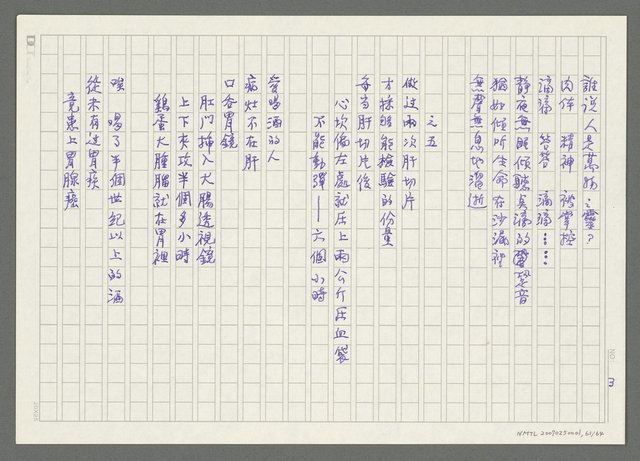 誰說人是萬物之靈？
肉體 精神 被掌控
滴滴 答答 滴滴……
靜夜無眠傾聽點滴的聲音
猶如傾聽生命在沙漏裡
無聲無息地濳逝
之五
做過兩次肝切片
才採夠能檢驗的份量
每當肝切片後
心坎偏左處就压上兩公斤压血袋
不能動彈——六個小時
愛喝酒的人
病灶不在肝
口吞胃鏡
肛門插入大腸透視鏡
上下夾攻半個多小時
鷄蛋大腫腦就在胃裡
唉 喝了半個世紀以上的酒
從未有過胃疾
竟患上胃腺癌
NO.
3
25X25
NMTL 20070250001, 61/64